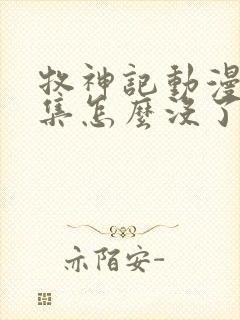 牧神記動漫
集怎麼沒了
亦陌安-